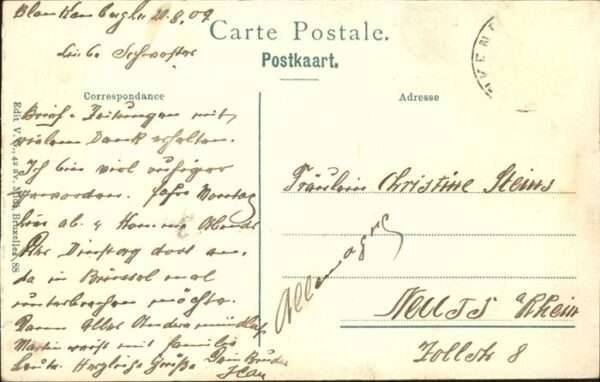 Blankenberghe 20.8.09
Carte Postale.
Liebe Schwester
Postkaart.
Correspondance
Brief u. Zeitungen mit
vielem Dank erhalten.
Ich bin viel ruhiger
geworden. Fahre Montag
hier ab. u Komme Abends
Dienstag dort an.
da in Brüssel mal
unterbrechen möchte.
Dann Alles Andere mündlich
Martin
Familie
Herzliche Grüße Dein Bruder
Edit. V. Bruxelles 88
VENT
Adresse
Fräulein Christine Steins
Allemagne
Neuss a/Rhein
Zollstr 8